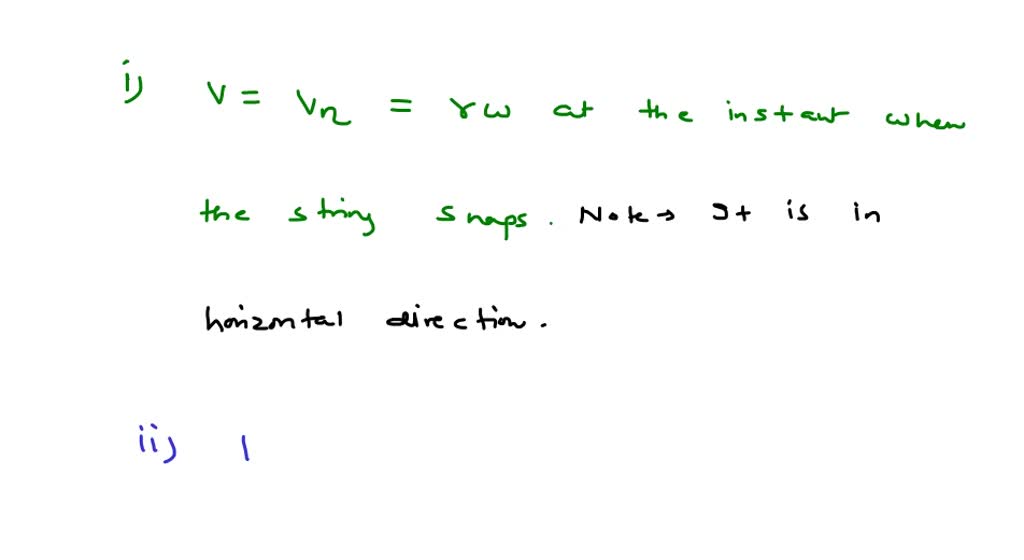 i) V = Vx = rω at the instant when
the string snaps. Note → It is in
horizontal direction.
ii) I